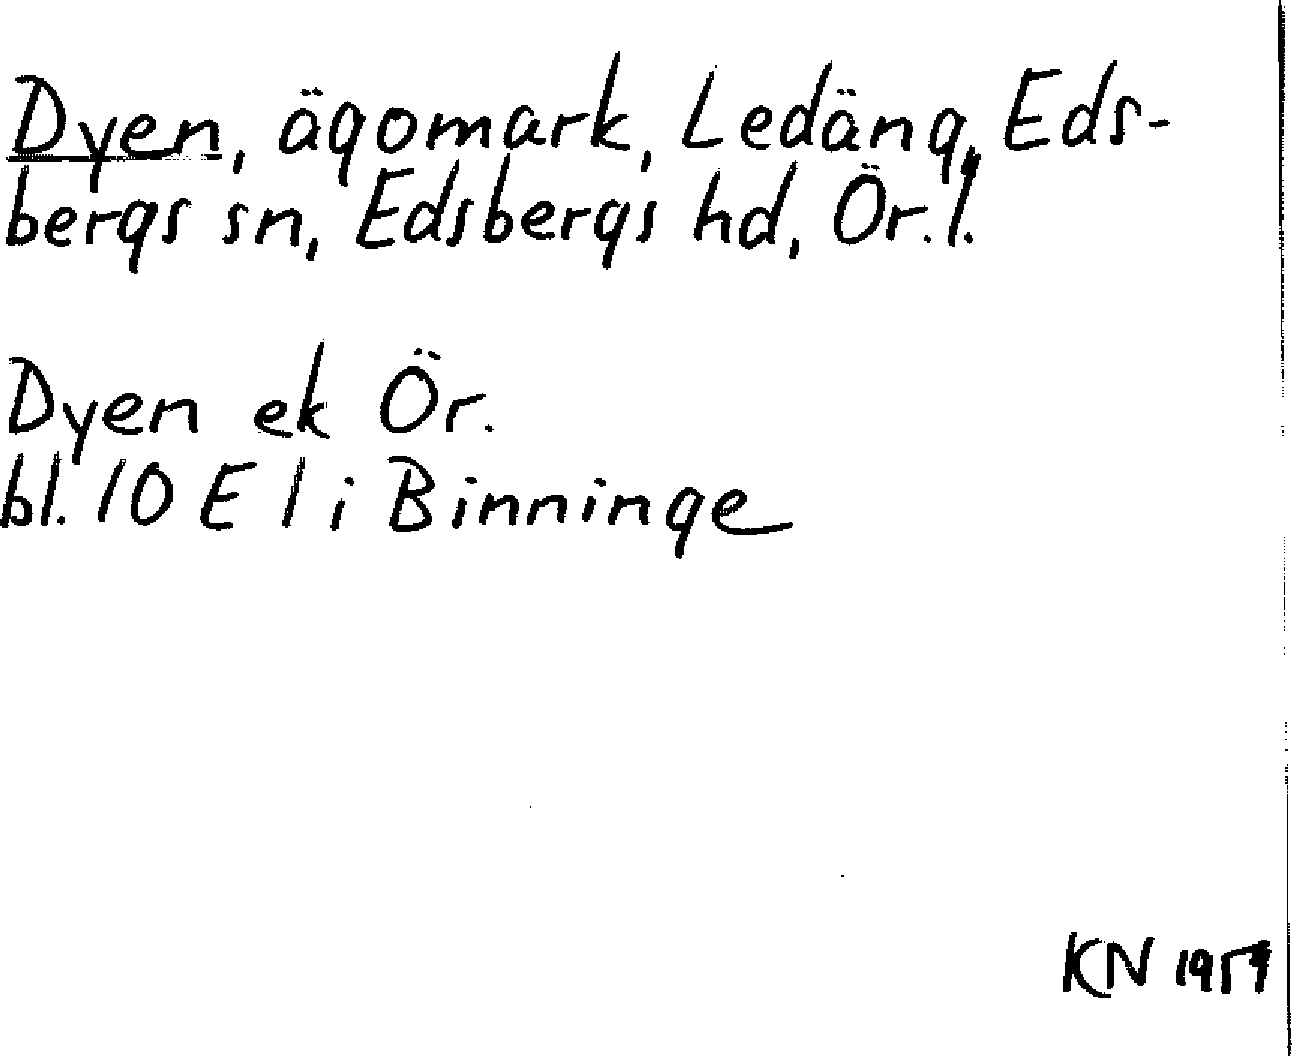 Dyen, ägomark, Ledäng, Eds-
bergs sn, Edsbergs hd, Ör.l.
Dyen ek Ör.
bl. 10 E 1 i Binninge
KN